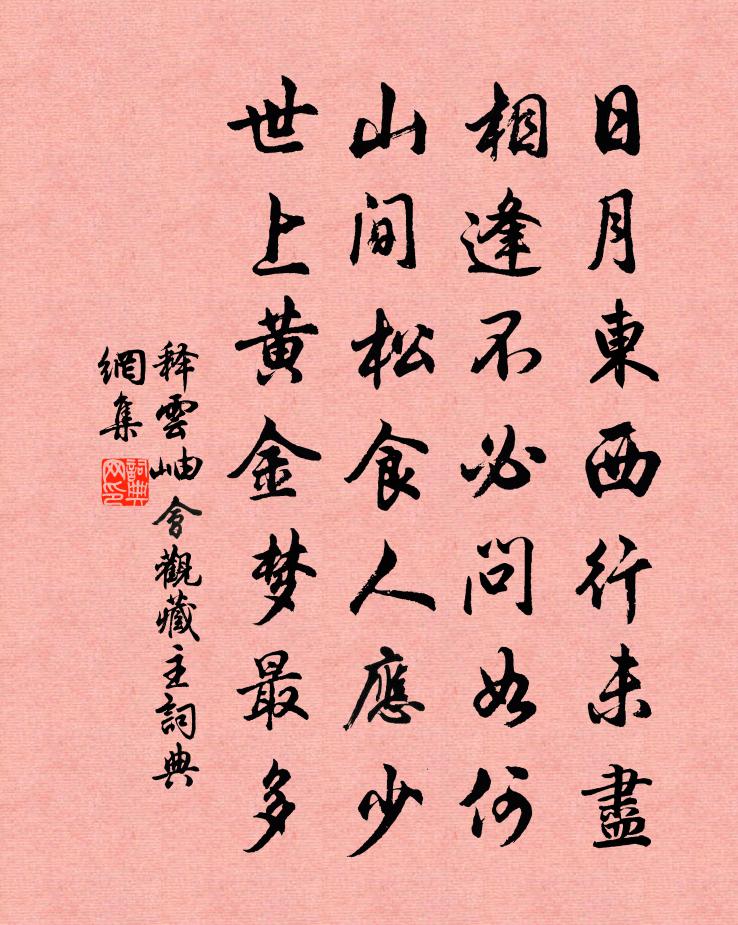 日月東西行未盡
相逢不必問如何
山間松食人應少
世上黃金梦最多
释雲岫會觀藏主詞典
網集
詞典
网印